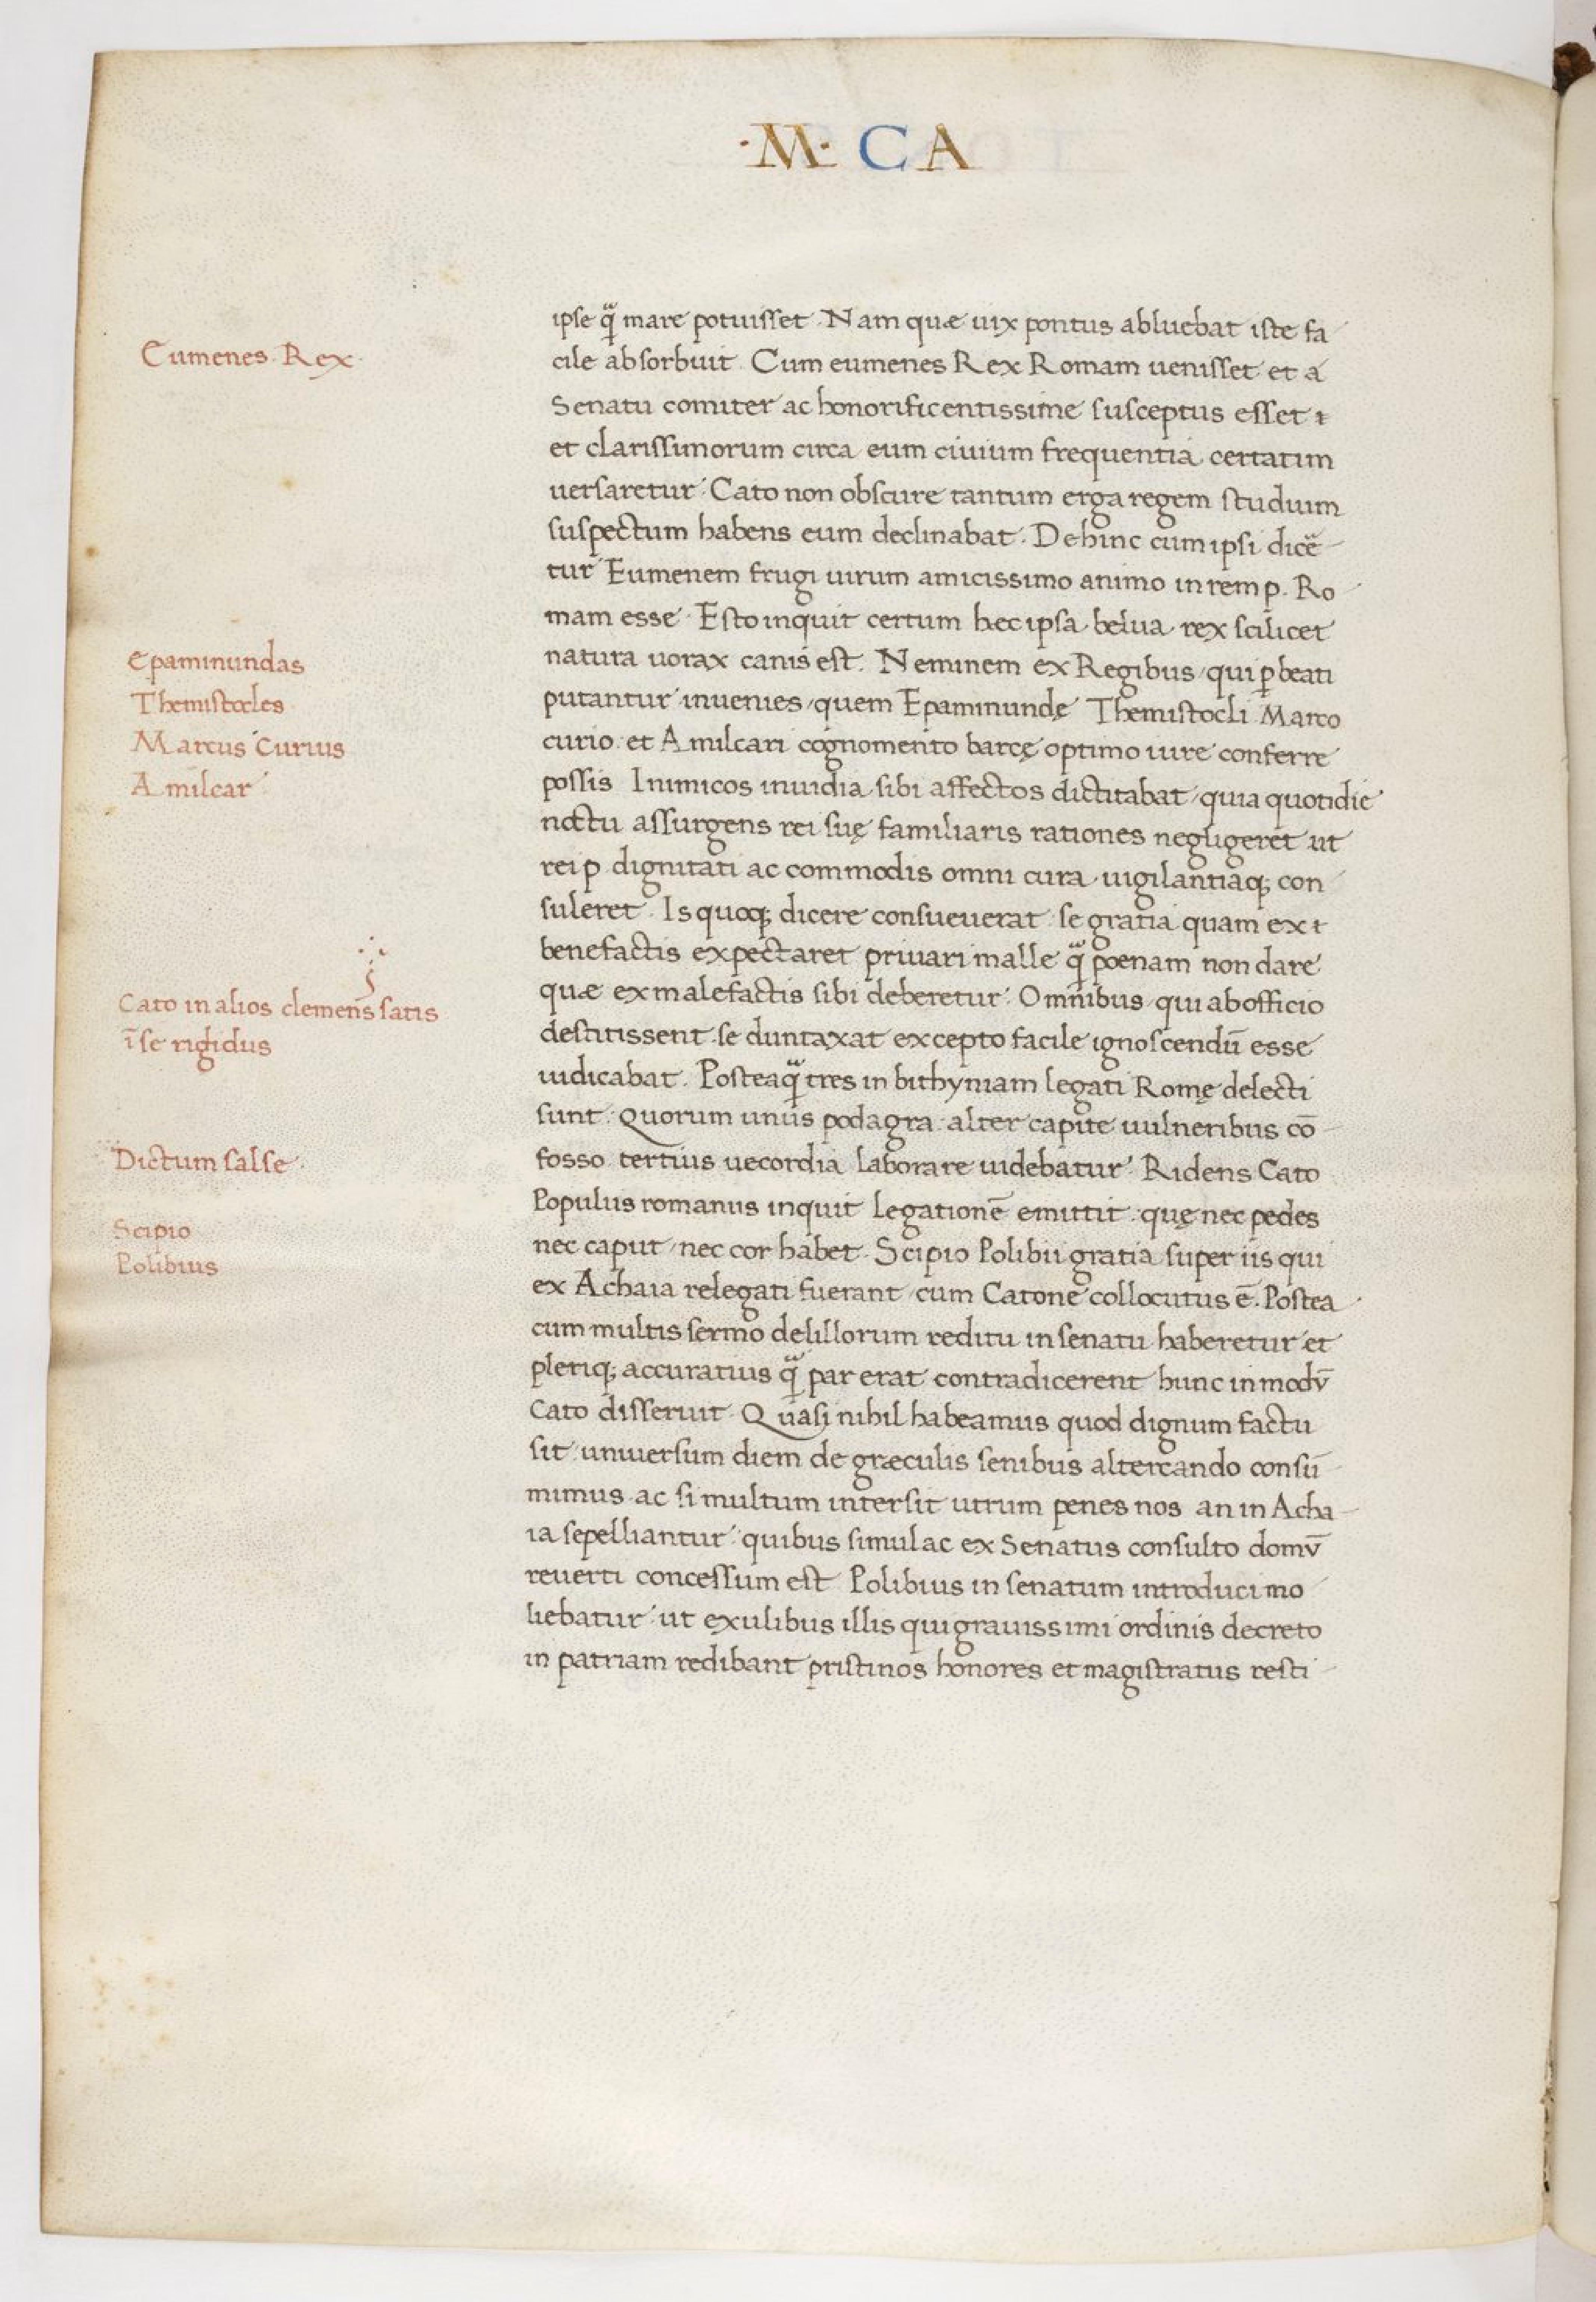 ·M· CA
ipse q̃ mare potuisset. Nam quæ uix pontus abluebat iste fa-
cile absorbuit. Cum eumenes Rex Romam uenisset et a
Senatu comiter ac honorificentissime susceptus esset &
et clarissimorum circa eum ciuium frequentia certatim
uersaretur: Cato non obscure tantum erga regem studium
suspectum habens eum declinabat. Dehinc cum ipsi dicẽ-
tur Eumenem frugi uirum amicissimo animo in rem p. Ro-
mam esse. Esto inquit certum hec ipsa belua rex scilicet
natura uorax canis est. Neminem ex Regibus qui p̱beati
putantur inuenies, quem Epaminundę Themistocli Marco
curio et Amilcari cognomento barcę optimo iure conferre
possis. Inimicos inuidia sibi affectos dictitabat, quia quotidie
noctu assurgens rei suę familiaris rationes negligeret ut
rei p dignitati ac commodis omni cura uigilantiaq; con-
suleret. Is quoq; dicere consueuerat se gratia quam ex &
benefactis expectaret priuari malle q̃ poenam non dare
quæ ex malefactis sibi deberetur. Omnibus qui ab officio
destitissent se duntaxat excepto facile ignoscendū esse
iudicabat. Posteaq̃ tres in bithyniam legati Romę delecti
sunt: Quorum unus podagra: alter capite uulneribus cō-
fosso tertius uecordia laborare uidebatur. Ridens Cato
Populus romanus inquit legationē emittit: quę nec pedes
nec caput, nec cor habet. Scipio Polibii gratia super iis qui
ex Achaia relegati fuerant, cum Catone collocutus ē. Postea
cum multis sermo de illorum reditu in senatu haberetur et
pleriq; accuratius q̃ par erat contradicerent hunc in modū
Cato disseruit. Quasi nihil habeamus quod dignum factu
sit: uniuersum diem de græculis senibus altercando consū-
mimus ac si multum intersit utrum penes nos an in Acha-
ia sepelliantur: quibus simulac ex Senatus consulto domū
reuerti concessum est Polibius in senatum introduci mo-
liebatur: ut exulibus illis qui grauissimi ordinis decreto
in patriam redibant pristinos honores et magistratus resti-
Eumenes. Rex.
Epaminundas
Themistocles
Marcus Curius
Amilcar
Cato in alios clemens satis
ī se rigidus
Dictum salse.
Scipio
Polibius